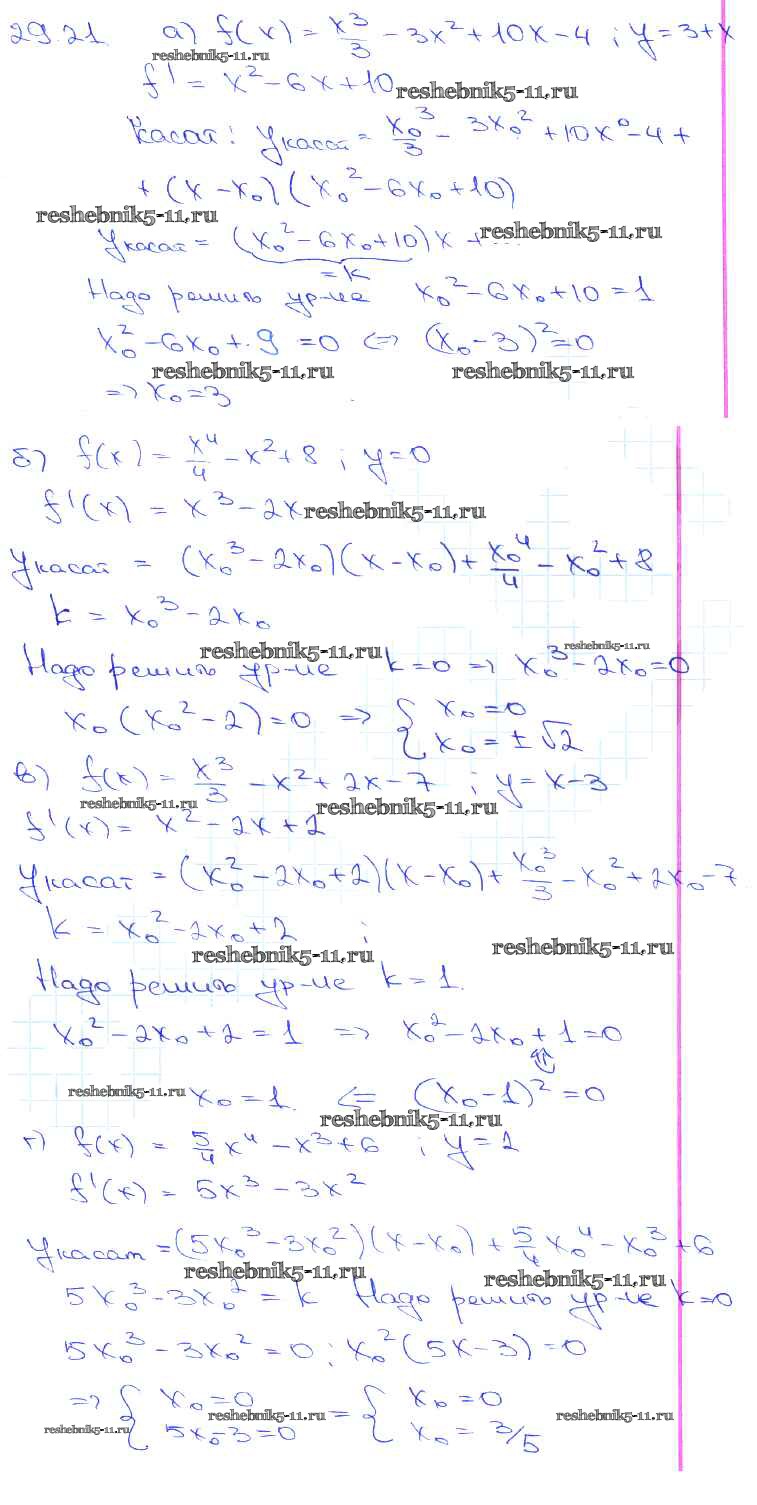 29.21. а) f(x) = x³/3 - 3x² + 10x - 4 ; y = 3+x
reshebnik5-11.ru
f' = x² - 6x + 10
reshebnik5-11.ru
Касат: y касат = x₀³/3 - 3x₀² + 10x⁰ - 4 +
+ (x - x₀)(x₀² - 6x₀ + 10)
reshebnik5-11.ru
y касат = (x₀² - 6x₀ + 10)x + ...
reshebnik5-11.ru
= k
Надо решить ур-ие x₀² - 6x₀ + 10 = 1
x₀² - 6x₀ + 9 = 0 <=> (x₀ - 3)² = 0
reshebnik5-11.ru reshebnik5-11.ru
=> x₀ = 3
б) f(x) = x⁴/4 - x² + 8 ; y = 0
f'(x) = x³ - 2x
reshebnik5-11.ru
y касат = (x₀³ - 2x₀)(x - x₀) + x₀⁴/4 - x₀² + 8
k = x₀³ - 2x₀
reshebnik5-11.ru reshebnik5-11.ru
Надо решить ур-ие k = 0 => x₀³ - 2x₀ = 0
x₀(x₀² - 2) = 0 => { x₀ = 0
x₀ = ± √2
в) f(x) = x³/3 - x² + 2x - 7 ; y = x - 3
reshebnik5-11.ru reshebnik5-11.ru
f'(x) = x² - 2x + 2
y касат = (x₀² - 2x₀ + 2)(x - x₀) + x₀³/3 - x₀² + 2x₀ - 7
k = x₀² - 2x₀ + 2 ;
reshebnik5-11.ru reshebnik5-11.ru
Надо решить ур-ие k = 1.
x₀² - 2x₀ + 2 = 1 => x₀² - 2x₀ + 1 = 0
⇕
reshebnik5-11.ru x₀ = 1. <= (x₀ - 1)² = 0
reshebnik5-11.ru
г) f(x) = 5/4 x⁴ - x³ + 6 ; y = 2
f'(x) = 5x³ - 3x²
y касат = (5x₀³ - 3x₀²)(x - x₀) + 5/4 x₀⁴ - x₀³ + 6
reshebnik5-11.ru reshebnik5-11.ru
5x₀³ - 3x₀² = k Надо решить ур-ие k = 0
5x₀³ - 3x₀² = 0 ; x₀²(5x - 3) = 0
=> { x₀ = 0 = { x₀ = 0
reshebnik5-11.ru reshebnik5-11.ru reshebnik5-11.ru
5x₀ - 3 = 0 x₀ = 3/5